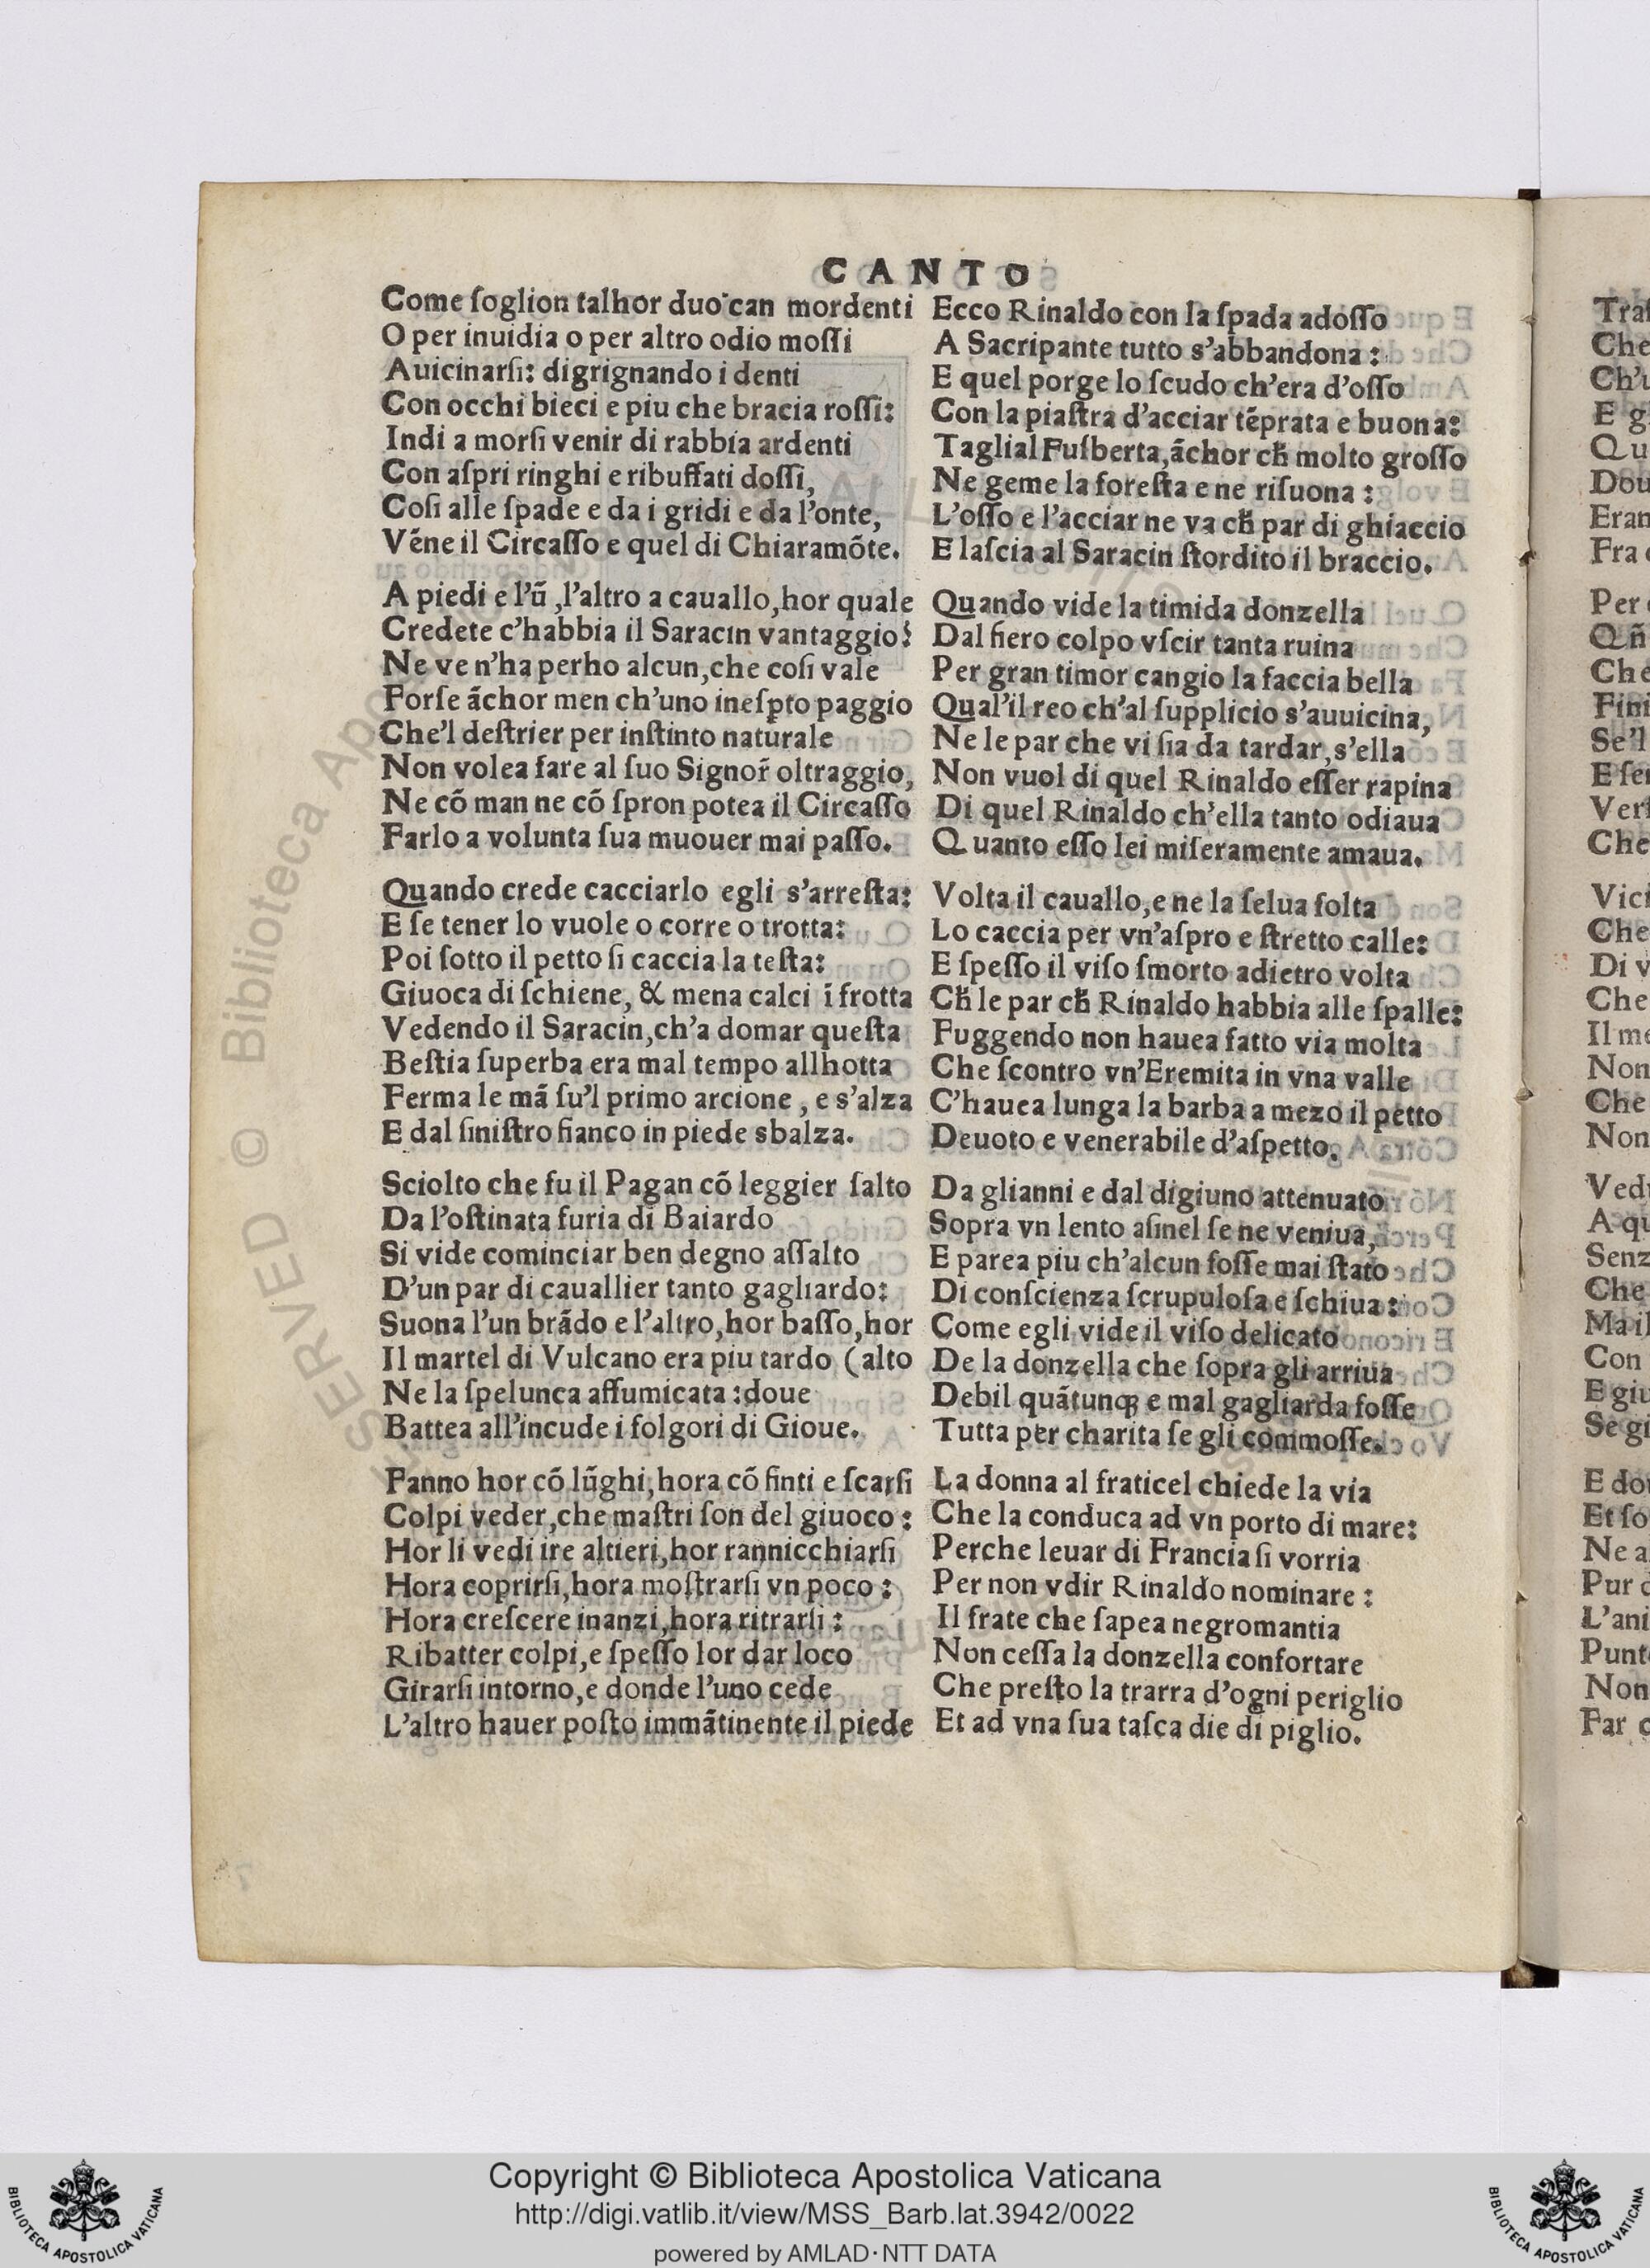 CANTO
Come ſoglion talhor duo can mordenti
O per inuidia o per altro odio moſſi
Auicinarſi: digrignando i denti
Con occhi bieci e piu che bracia roſſi:
Indi a morſi venir di rabbia ardenti
Con aſpri ringhi e ribuffati doſſi,
Coſi alle ſpade e da i gridi e da l'onte,
Vēne il Circaſſo e quel di Chiaramōte.
A piedi e l'ū, l'altro a cauallo, hor quale
Credete c'habbia il Saracin vantaggio?
Ne ve n'ha perho alcun, che coſi vale
Forſe āchor men ch'uno ineſpto paggio
Che'l deſtrier per inſtinto naturale
Non volea fare al ſuo Signor̃ oltraggio,
Ne cō man ne cō ſpron potea il Circaſſo
Farlo a volunta ſua muouer mai paſſo.
Quando crede cacciarlo egli s'arreſta:
E ſe tener lo vuole o corre o trotta:
Poi ſotto il petto ſi caccia la teſta:
Giuoca di ſchiene, & mena calci ī frotta
Vedendo il Saracin, ch'a domar queſta
Beſtia ſuperba era mal tempo allhotta
Ferma le mā ſu'l primo arcione, e s'alza
E dal ſiniſtro fianco in piede sbalza.
Sciolto che fu il Pagan cō leggier ſalto
Da l'oſtinata furia di Baiardo
Si vide cominciar ben degno aſſalto
D'un par di cauallier tanto gagliardo:
Suona l'un brādo e l'altro, hor baſſo, hor
Il martel di Vulcano era piu tardo (alto
Ne la ſpelunca affumicata: doue
Battea all'incude i folgori di Gioue.
Fanno hor cō lūghi, hora cō finti e ſcarſi
Colpi veder, che maſtri ſon del giuoco:
Hor li vedi ire altieri, hor rannicchiarſi
Hora coprirſi, hora moſtrarſi vn poco:
Hora creſcere inanzi, hora ritrarſi:
Ribatter colpi, e ſpeſſo lor dar loco
Girarſi intorno, e donde l'uno cede
L'altro hauer poſto immātinente il piede
Ecco Rinaldo con la ſpada adoſſo
A Sacripante tutto s'abbandona:
E quel porge lo ſcudo ch'era d'oſſo
Con la piaſtra d'acciar tēprata e buona:
Taglial Fuſberta, āchor ch̄ molto groſſo
Ne geme la foreſta e ne riſuona:
L'oſſo e l'acciar ne va ch̄ par di ghiaccio
E laſcia al Saracin ſtordito il braccio.
Quando vide la timida donzella
Dal fiero colpo vſcir tanta ruina
Per gran timor cangio la faccia bella
Qual'il reo ch'al ſupplicio s'auuicina,
Ne le par che vi ſia da tardar, s'ella
Non vuol di quel Rinaldo eſſer rapina
Di quel Rinaldo ch'ella tanto odiaua
Quanto eſſo lei miſeramente amaua.
Volta il cauallo, e ne la ſelua folta
Lo caccia per vn'aſpro e ſtretto calle:
E ſpeſſo il viſo ſmorto adietro volta
Ch̄ le par ch̄ Rinaldo habbia alle ſpalle:
Fuggendo non hauea fatto via molta
Che ſcontro vn'Eremita in vna valle
C'hauea lunga la barba a mezo il petto
Deuoto e venerabile d'aſpetto.
Da glianni e dal digiuno attenuato
Sopra vn lento aſinel ſe ne veniua,
E parea piu ch'alcun foſſe mai ſtato
Di conſcienza ſcrupuloſa e ſchiua:
Come egli vide il viſo delicato
De la donzella che ſopra gli arriua
Debil quātunqꝫ e mal gagliarda foſſe
Tutta per charita ſe gli commoſſe.
La donna al fraticel chiede la via
Che la conduca ad vn porto di mare:
Perche leuar di Francia ſi vorria
Per non vdir Rinaldo nominare:
Il frate che ſapea negromantia
Non ceſſa la donzella confortare
Che preſto la trarra d'ogni periglio
Et ad vna ſua taſca die di piglio.
Copyright © Biblioteca Apostolica Vaticana
http://digi.vatlib.it/view/MSS_Barb.lat.3942/0022
powered by AMLAD·NTT DATA
BIBLIOTECA APOSTOLICA VATICANA
BIBLIOTECA APOSTOLICA VATICANA